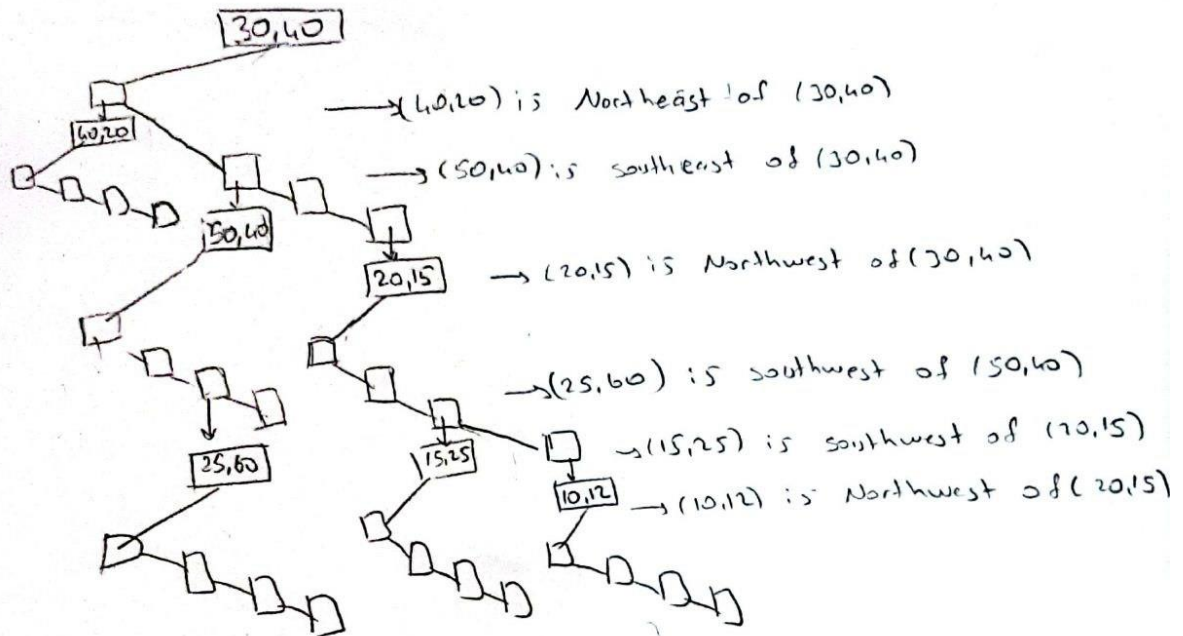 30,40
→(40,20) is Northeast of (30,40)
40,20
→(50,40) is southeast of (30,40)
50,40
20,15
→(20,15) is Northwest of (30,40)
→(25,60) is southwest of (50,40)
25,60
15,25
→(15,25) is southwest of (20,15)
10,12
→(10,12) is Northwest of (20,15)